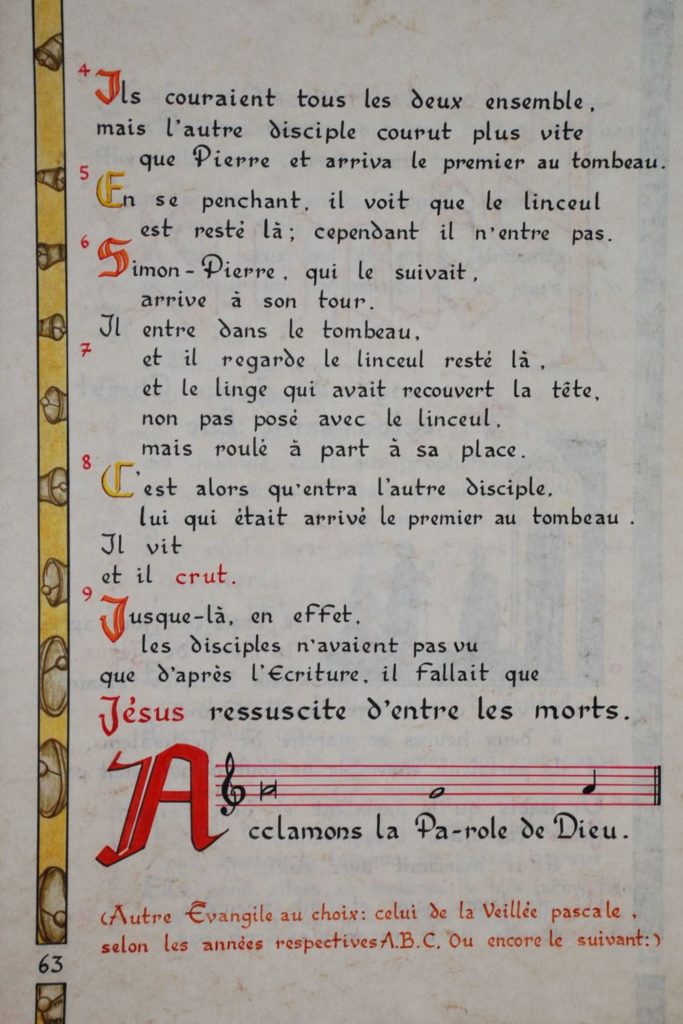 4 Ils couraient tous les deux ensemble,
mais l'autre disciple courut plus vite
que Pierre et arriva le premier au tombeau.
5 En se penchant, il voit que le linceul
est resté là; cependant il n'entre pas.
6 Simon-Pierre, qui le suivait,
arrive à son tour.
Il entre dans le tombeau,
7 et il regarde le linceul resté là,
et le linge qui avait recouvert la tête,
non pas posé avec le linceul,
mais roulé à part à sa place.
8 C'est alors qu'entra l'autre disciple,
lui qui était arrivé le premier au tombeau.
Il vit
et il crut.
9 Jusque-là, en effet,
les disciples n'avaient pas vu
que d'après l'Ecriture, il fallait que
Jésus ressuscite d'entre les morts.
Acclamons la Pa-role de Dieu.
(Autre Evangile au choix: celui de la Veillée pascale,
selon les années respectives A.B.C. Ou encore le suivant:)
63